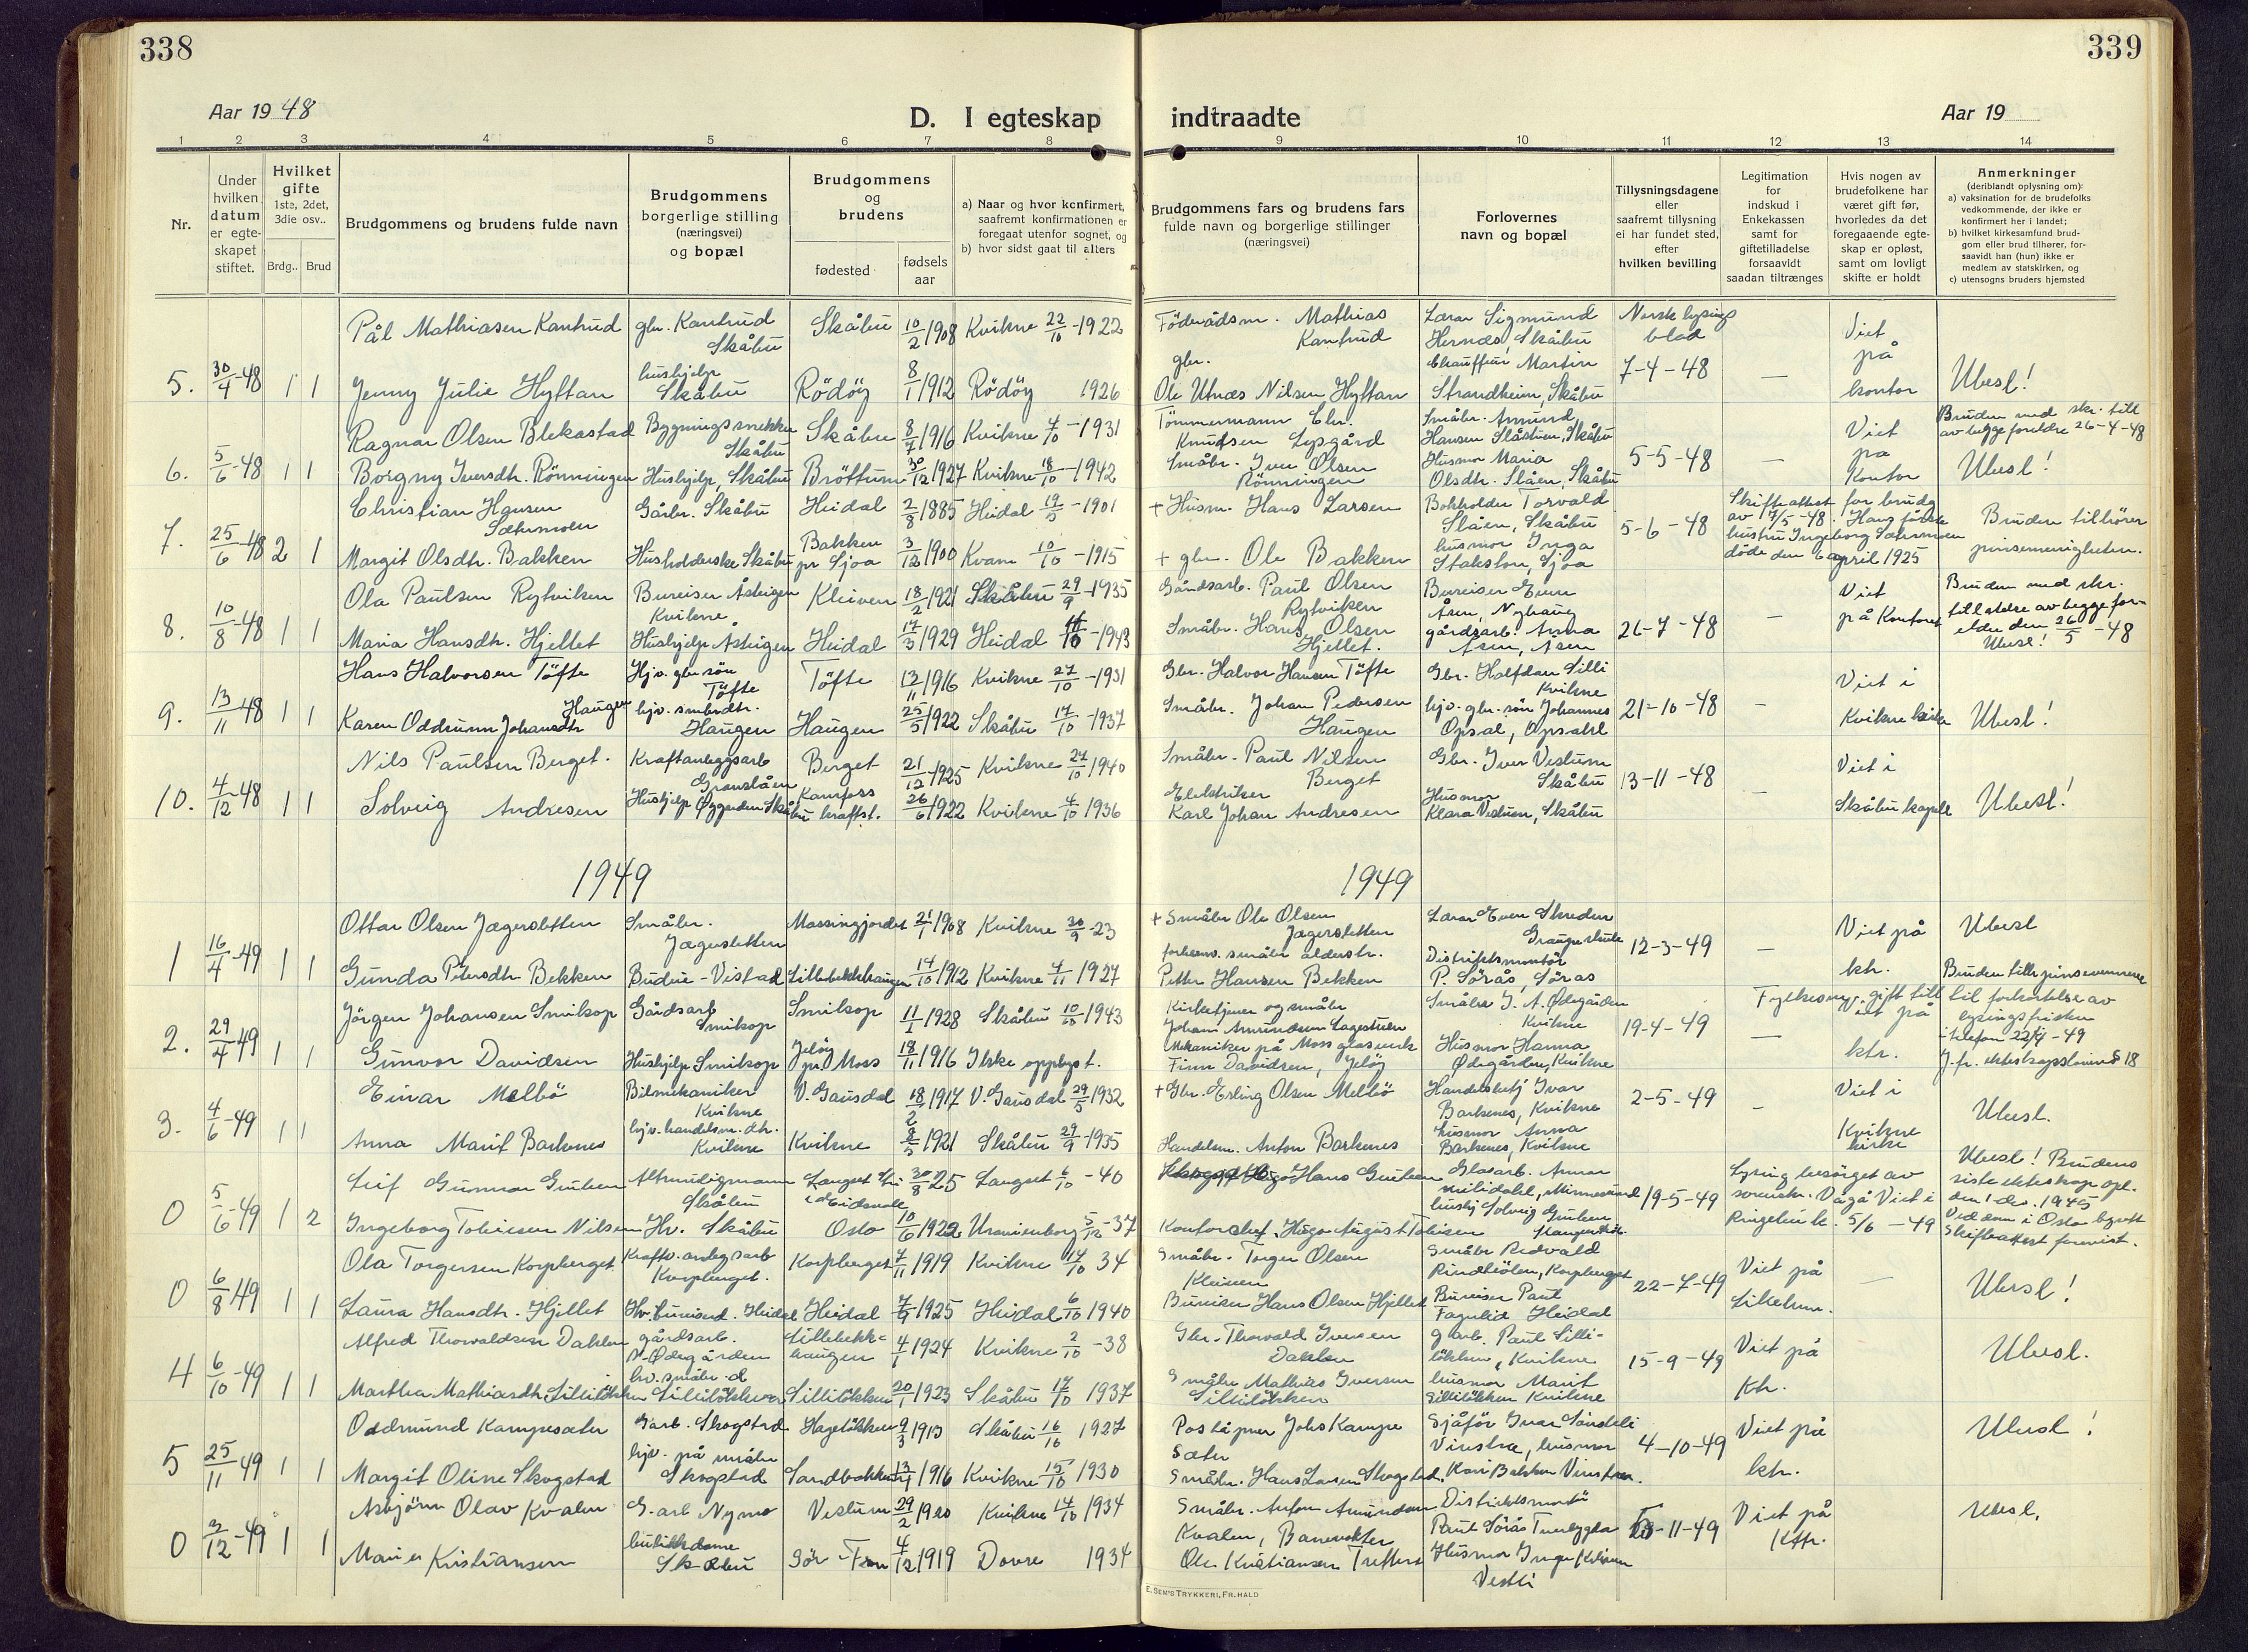 338
339
Aar 1948
D. I egteskap indtraadte
Aar 19
1 2 3 4 5 6 7 8 9 10 11 12 13 14
Nr.
Under hvilken datum er egteskapet stiftet.
Hvilket gifte 1ste, 2det, 3die osv..
Brdg.. Brud
Brudgommens og brudens fulde navn
Brudgommens borgerlige stilling (næringsvei) og bopæl
Brudgommens og brudens
fødested
fødsels aar
a) Naar og hvor konfirmert, saafremt konfirmationen er foregaat utenfor sognet, og
b) hvor sidst gaat til alters
Brudgommens fars og brudens fars fulde navn og borgerlige stillinger (næringsvei)
Forlovernes navn og bopæl
Tillysningsdagene eller saafremt tillysning ei har fundet sted, efter hvilken bevilling
Legitimation for indskud i Enkekassen samt for giftetilladelse forsaavidt saadan tiltrænges
Hvis nogen av brudefolkene har været gift før, hvorledes da det foregaaende egteskap er opløst, samt om lovligt skifte er holdt
Anmerkninger (deriblandt oplysning om):
a) vaksination for de brudefolks vedkommende, der ikke er konfirmert her i landet;
b) hvilket kirkesamfund brudgom eller brud tilhører, forsaavidt han (hun) ikke er medlem av statskirken, og
c) utensogns bruders hjemsted
5. 30/4-48 1 1
Pål Mathiasen Kantrud gbr. Kantrud Skåbu Skåbu 10/2 1908 Kvikne 22/10-1922 Föderådsm. Mathias Kantrud Lærar Sigmund Hernæs, Skåbu Norsk lysings blad 7-4-48 — Viet på kontor Ubesl!
Jenny Julie Hyttan hushjelp Skåbu Rödöy 8/1 1912 Rödöy 1926 gbr. Ole Utnæs Nilsen Hyttan Chauffeur Martin Strandheim, Skåbu
6. 5/6-48 1 1
Ragnar Olsen Blekastad Bygningssnekker Skåbu Skåbu 8/7 1916 Kvikne 4/10-1931 Tömmermann Chr. Knudsen Lysgård Småbr. Amund Hansen Slåstuen, Skåbu 5-5-48 — Viet på Kontor Bruden med skr. till av begge foreldre 26-4-48 Ubesl!
Borgny Iversdtr. Rönningen Hushjelp, Skåbu Bröttum 30/12 1927 Kvikne 18/10-1942 Småbr. Iver Olsen Rönningen Husmor Maria Olsdtr. Slåen, Skåbu
7. 25/6-48 2 1
Christian Hansen Sætermoen Gårbr. Skåbu Heidal 2/8 1885 Heidal 19/5-1901 + Husm. Hans Larsen Bokholder Torvald Slåen, Skåbu 5-6-48 Skifteattest for brudg av 17/5-48. Hans første hustru Ingeborg Sætermoen döde den 6 april 1925 Bruden tilhører pinsemenigheten.
Margit Olsdtr. Bakken Husholderske Skåbu Bakken pr Sjoa 3/12 1900 Kvam 10/10-1915 + gbr. Ole Bakken husmor Inga Stakston, Sjoa
8. 10/8-48 1 1
Ola Paulsen Rytviken Bureiser Åstigen Kvikne Kleiven 18/2 1921 Skåbu 29/9-1935 Gårdsarb. Paul Olsen Rytviken Bureiser Even Åsen, Nyhaug 26-7-48 — Viet på Kontoret Bruden med skr. tillatelse av begge foreldre den 26/5-48 Ubesl!
Maria Hansdtr. Hjellet Hushjelp Åstigen Heidal 17/3 1929 Heidal 10-1943 Småbr. Hans Olsen Hjellet. gårdsarb. Anna Åsen, Åsen
9. 13/11-48 1 1
Hans Halvorsen Töfte Hjv. gbr sön Töfte Töfte 13/11 1916 Kvikne 27/10-1931 Gbr. Halvor Hansen Töfte Gbr. Halfdan Lilli Kvikne 21-10-48 — Viet i Kvikne kirke Ubesl!
Karen Oddrunn Johansdtr Haugen hjv. smbrdtr. Haugen Haugen 25/5 1922 Skåbu 17/10-1937 Småbr. Johan Pedersen Haugen hjv. gbr. sön Johannes Opsal, Opsahl
10. 4/12-48 1 1
Nils Paulsen Berget. Kraftanleggsarb Granslåen Berget 21/12-1925 Kvikne 27/10 1940 Småbr. Paul Nilsen Berget Gbr. Iver Veslum Skåbu 13-11-48 — Viet i Skåbu kapell Ubesl!
Solveig Andresen Hushjelp Øygarden Skåbu Kamfoss kraftst. 26/6 1922 Kvikne 4/10 1936 Elektriker Karl Johan Andresen Husmor Klara Veslum, Skåbu
1949
1949
1 16/4-49 1 1
Ottar Olsen Jægersletten Småbr. Jægersletten Massingjordet 21/1 1908 Kvikne 30/9-23 + Småbr Ole Olsen Jægersletten Lærar Even Skreden Grauge skule 12-3-49 — Viet på ktr. Ubesl
Gunda Petersdtr Bekken Budeie-Vistad Lillebekkhaugen 14/10 1912 Kvikne 4/11 1927 småbr alderstr. Petter Hansen Bekken Distriktsmontör P. Sörås, Sörås Bruden tilh. pinsevennene
2. 29/4-49 1 1
Jörgen Johansen Smikop Gårdsarb Smikop Smikop 11/1 1928 Skåbu 10/10-1943 Kirketjener og småbr Johans Amundsen Lagestuen Småbr J. A. Ødegården Kvikne 19-4-49 — Viet på ktr. til forkortelse av lysingsfristen i telefon 22/4-49 J.fr. ekteskapsloven § 18
Gunvor Davidsen Hushjelp Smikop Jelöy pr Moss 18/11 1916 Ikke opplyst. Mekaniker på Moss glasverk Finn Davidsen, Jelöy Husmor Hanna Ødegården, Kvikne
3. 4/6-49 1 1
Einar Melbö Bilmekaniker Kvikne V. Gausdal 18/2 1917 V. Gausdal 29/5 1932 + Gbr. Erling Olsen Melbö Handelsbetj Ivar Barhenes, Kvikne 2-5-49 — Viet i Kvikne kirke Ubesl.
Anna Marit Barkenes hjv. handelsm. dtr. Kvikne Kvikne 8/5 1921 Skåbu 29/9-1935 Handelsm. Anton Barkenes husmor Anna Barkenes, Kvikne
0 5/6-49 1 2
Leif Gunnar Gruben Altmuligmann Skåbu Langset i Eidsvoll 30/8 25 Langset 6/10-40 Hans Gruben Glasarb. Annar Minnesund 19-5-49 Lysing besörget av sorenskr. Vågå Viet i Ringebu k. 5/6-49 Ubesl! Brudens siste ekteskap opl. den 1 des. 1945 Ved dom i Oslo byrett Skifteattest forevist.
Ingeborg Tobiesen Nilsen Hv. Skåbu Oslo 10/6 1922 Uranienborg 5/12-37 Kontorchef. Hugo August Tobiesen husbj Solveig Gruben
0 6/8-49 1 1
Ola Torgersen Korpberget Kraftv. anlegsarb Korpberget. Korpberget 7/11 1919 Kvikne 14/10 34 Småbr. Torger Olsen Kleiven Småbr Redvald Rindhölen, Korpberget 22-7-49 — Viet på Ubesl!
Laura Hansdtr. Hjellet Heidal Heidal 7/9 1925 Heidal 6/10 1940 Bureiser Hans Olsen Hjellet Bureiser Paul Fagerlid Heidal
4 6/10-49 1 1
Alfred Thorwaldsen Dahlen gårdsarb. N-Ødegården Lillebekkhaugen 4/1 1924 Kvikne 2/10-38 Gbr. Thorvald Iversen Dahlen g arb. Paul Lillilökken, Kvikne 15-9-49 Viet på Ktr. Ubesl.
Martha Mathiasdtr. Lillilökken hv. småbr. d Lillilökken Lillilökken 20/1 1923 Skåbu 17/10 1937 Småbr Mathias Iversen Lillilökken husmor Marit Lillilökken Kvikne
5 25/11-49 1 1
Oddmund Kampesæter Garb. Skogstad Hagelökken 9/3 1913 Skåbu 16/10 1927 Poståpner Johs Kampesæter Sjåför Ivar Sandeli Vinstra, husmor 4-10-49 Viet på ktr. Ubesl!
Margit Oline Skogstad hjv. på småbr Skogstad Sandbakken 13/1 1916 Kvikne 15/10 1930 Småbr. Hans Larsen Skogstad. Kari Bakken Vinstra.
0 3/12-49 1 1
Asbjörn Olav Kvalen G. arb Nymo Veslum 29/2 1920 Kvikne 14/10 1934 Småbr. Anton Amundsen Kvalen, Distriktsmontör Paul Sörås 11-49 Viet på Ktr. Ubesl.
Marie Kristiansen butikkdame Skåbu Sör-Fron 4/12 1919 Dovre 1934 Banevokter Ole Kristiansen Tretten Husmor Vestli
E. SEM'S TRYKKERI, FR. HALD